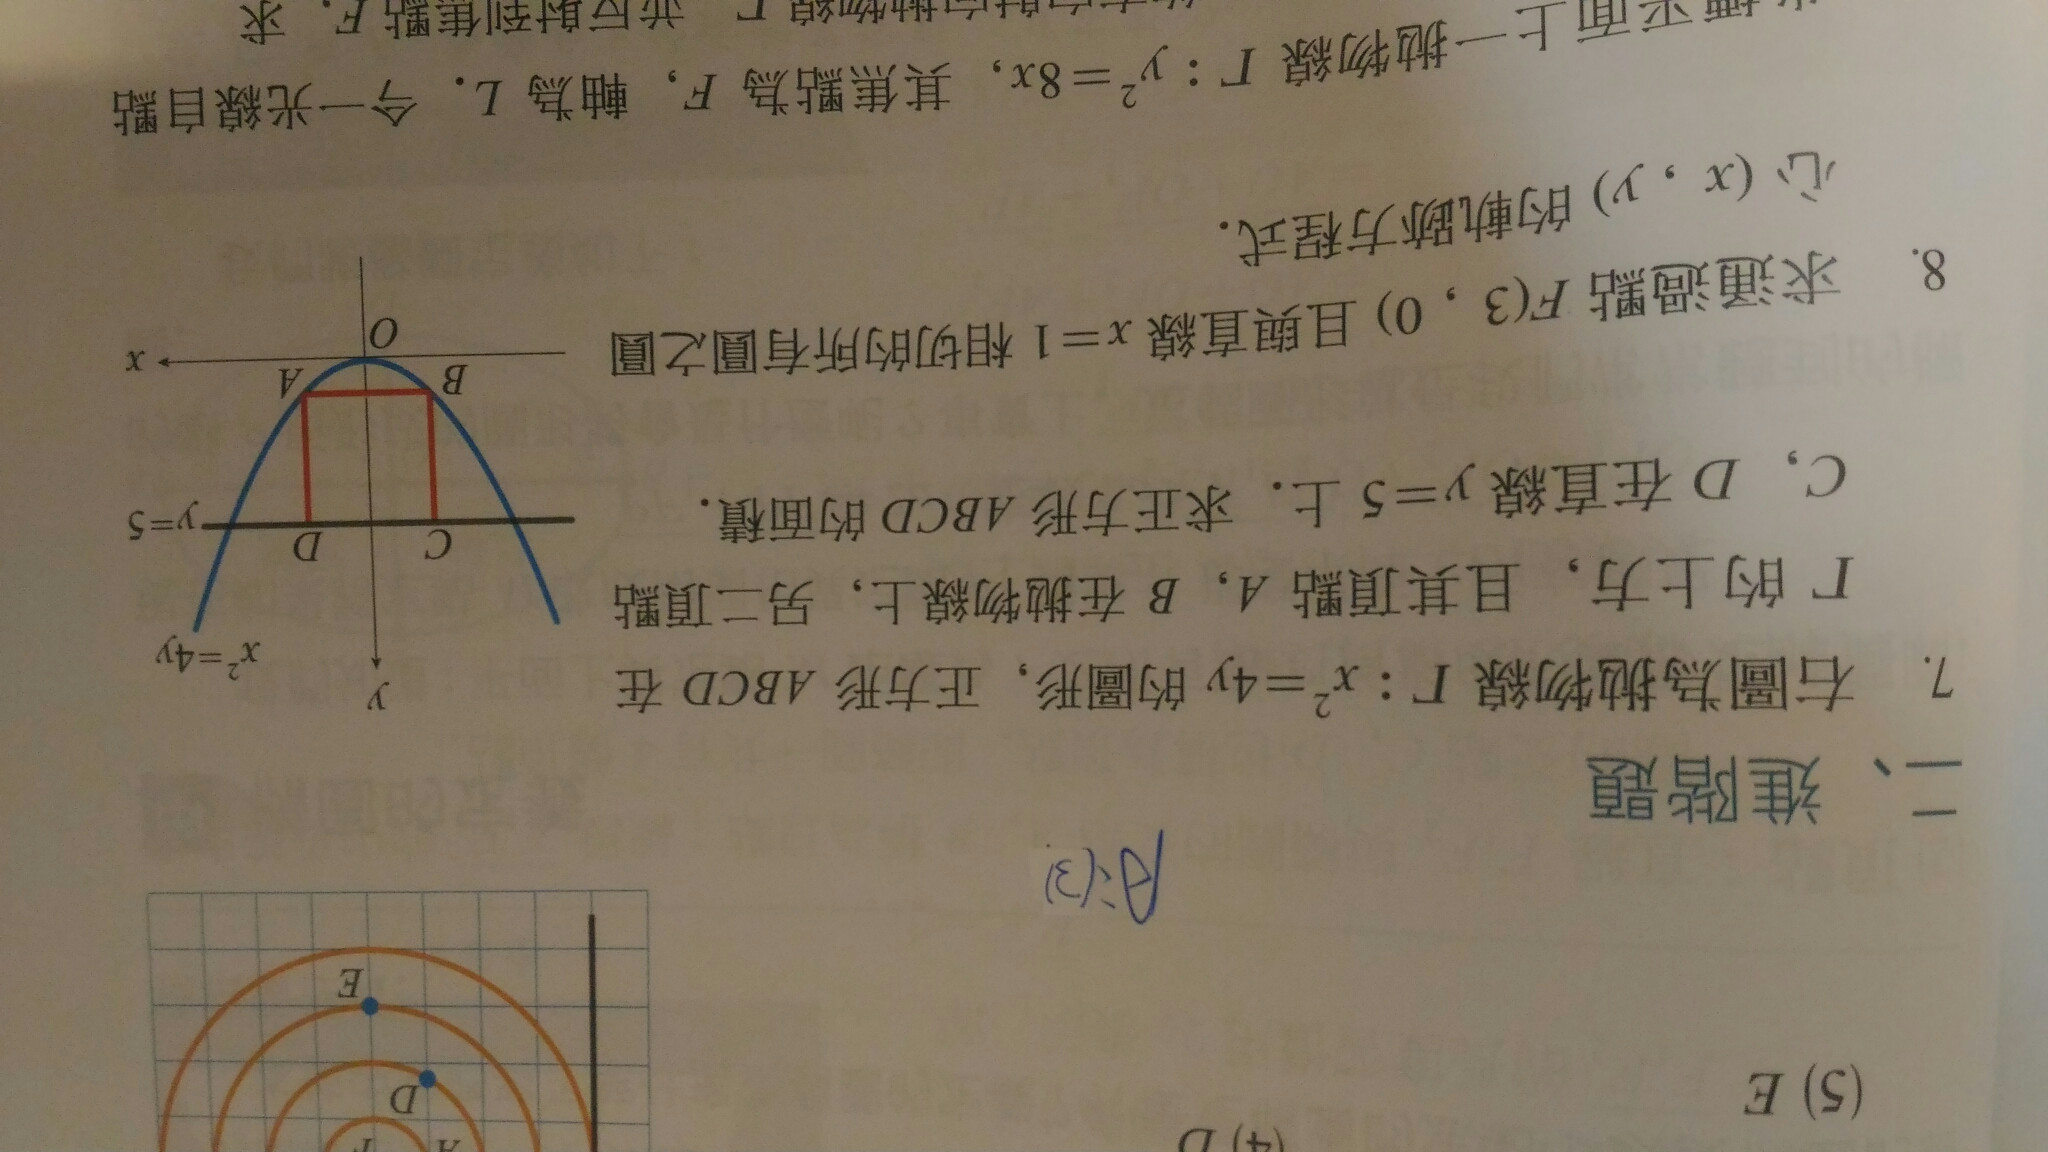 (4) D
(5) E
A
F
D
E
A:(3)
二、進階題
7. 右圖為拋物線 Γ:x²=4y 的圖形,正方形 ABCD 在
Γ 的上方,且其頂點 A,B 在拋物線上,另二頂點
C,D 在直線 y=5 上.求正方形 ABCD 的面積.
y
x²=4y
C
D
y=5
B
A
O
x
8. 求通過點 F(3,0) 且與直線 x=1 相切的所有圓之圓
心 (x,y) 的軌跡方程式.
平面上一拋物線 Γ:y²=8x,其焦點為 F,軸為 L.今一光線自點
拋物線 Γ 反射到焦點 F.求